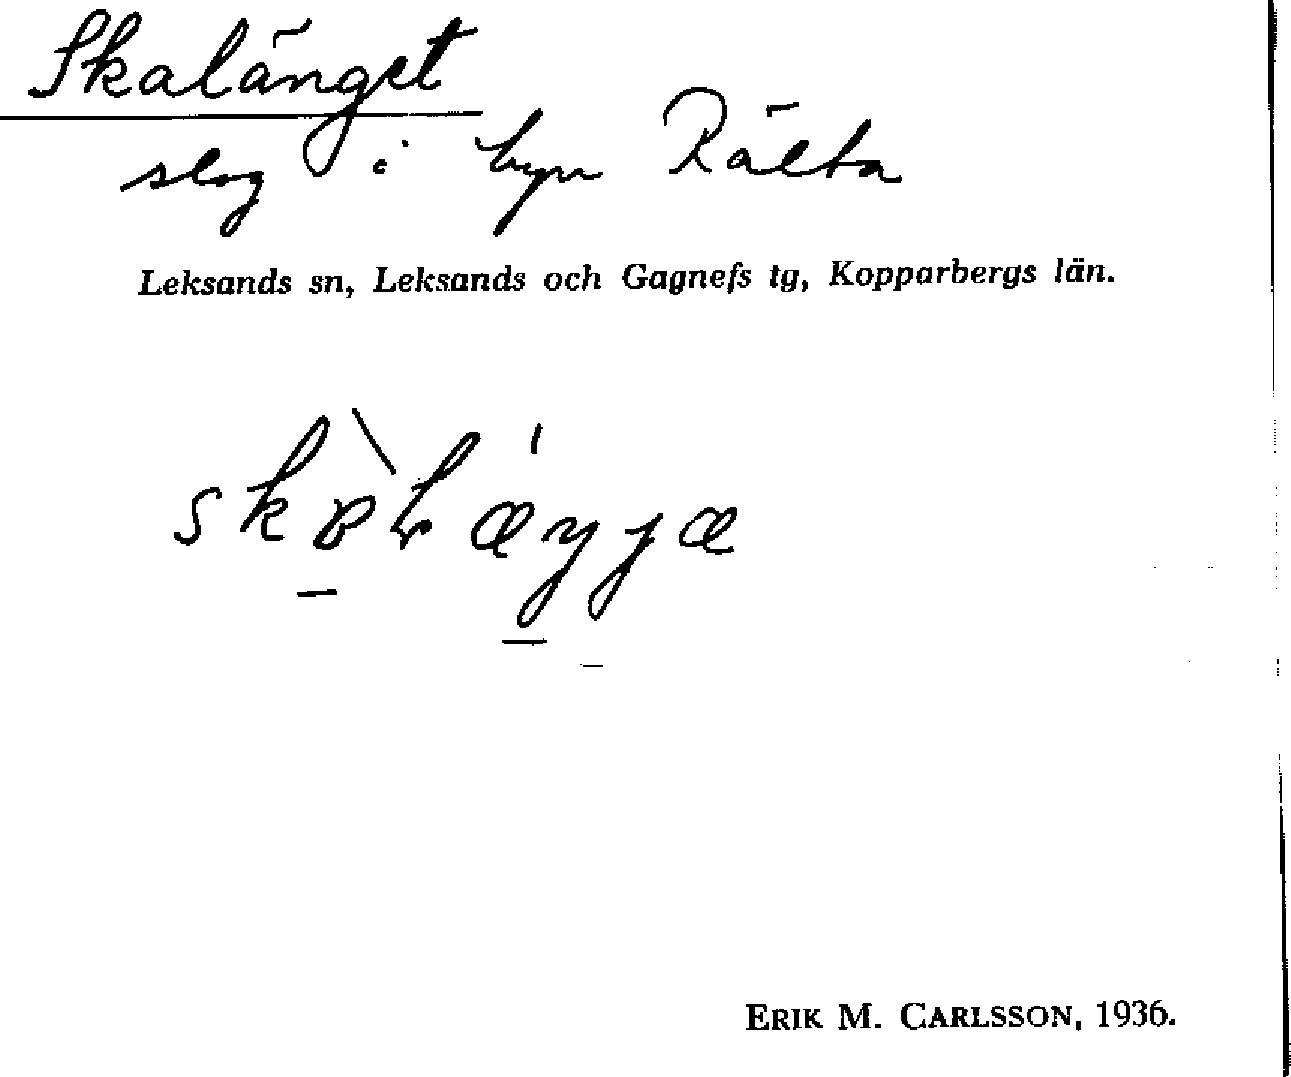 Skalänget
slog i byn Rälta
Leksands sn, Leksands och Gagnefs tg, Kopparbergs län.
ERIK M. CARLSSON, 1936.